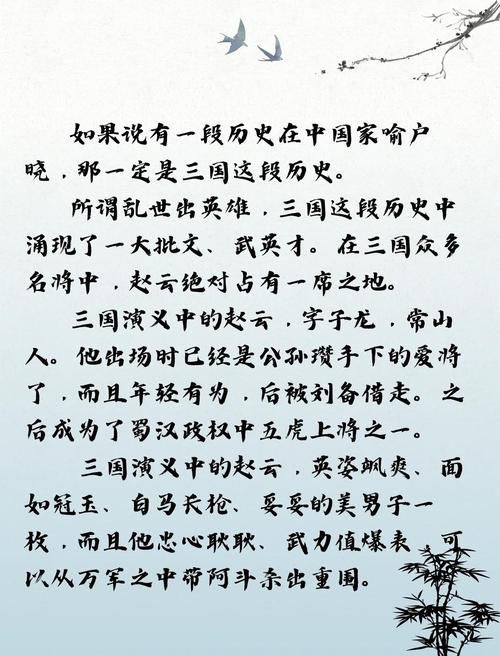 如果说有一段历史在中国家喻户
晓，那一定是三国这段历史。
所谓乱世出英雄，三国这段历史中
涌现了一大批文、武英才。在三国众多
名将中，赵云绝对占有一席之地。
三国演义中的赵云，字子龙，常山
人。他出场时已经是公孙瓒手下的爱将
了，而且年轻有为，后被刘备借走。之
后成为了蜀汉政权中五虎上将之一。
三国演义中的赵云，英姿飒爽、面
如冠玉、白马长枪、妥妥的美男子一
枚，而且他忠心耿耿、武力值爆表，可
以从万军之中带阿斗杀出重围。